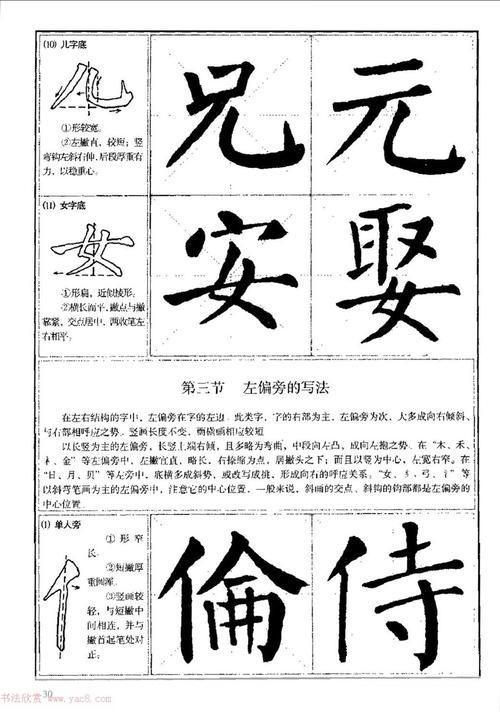 (10) 儿字底
①形较宽。
②左撇直，较短；竖
弯钩左斜右伸，后段厚重有
力，以稳重心。
兄 元
(11) 女字底
①形扁，近似棱形。
②横长而平，撇点与撇
靠紧，交点居中，两收笔左
右相平。
安 娶
第三节 左偏旁的写法
在左右结构的字中，左偏旁在字的左边。此类字，字的右部为主，左偏旁为次，大多成向右倾斜、
与右部相呼应之势。竖画长度不变，而横画相应较短
以长竖为主的左偏旁，长竖上端右倾，且多略为弯曲，中段向左凸，成向左抱之势。在“木、禾、
金”等左偏旁中，左撇宜直，略长，右捺缩为点，居撇头之下；而且以竖为中心，左宽右窄。在
“日、月、贝”等左旁中，底横多成斜势，或改写成挑，形成向右的呼应关系。“女、弓、”等
以斜弯笔画为主的左偏旁中，注意它的中心位置，一般来说，斜画的交点、斜钩的钩部都是左偏旁的
中心位置
(1) 单人旁
①形窄
长。
②短撇厚
重圆浑。
③竖画较
轻，与短撇中
间相连，并与
撇首起笔处对
正。
倫 侍
30
书法欣赏 www.yac8.com